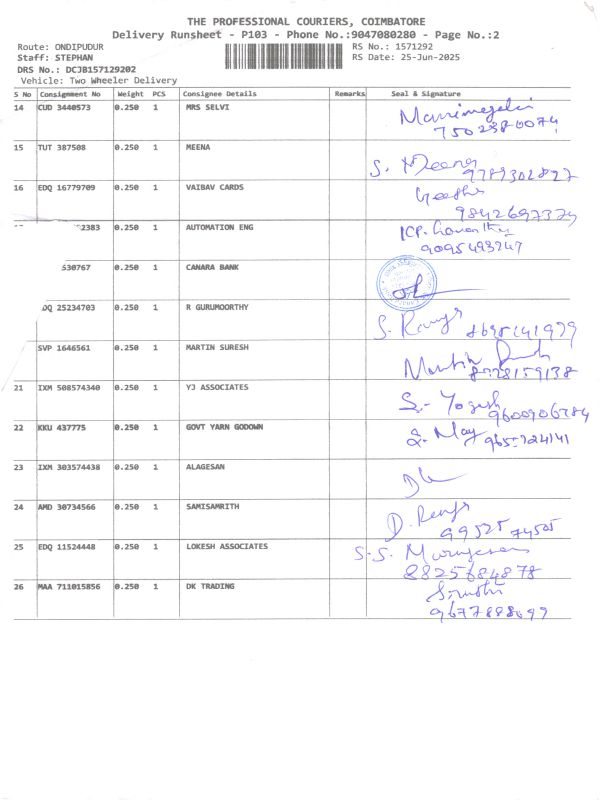 THE PROFESSIONAL COURIERS, COIMBATORE
Delivery Runsheet - P103 - Phone No.:9047080280 - Page No.:2
Route: ONDIPUDUR RS No.: 1571292
Staff: STEPHAN RS Date: 25-Jun-2025
DRS No.: DCJB157129202
Vehicle: Two Wheeler Delivery
S No Consignment No Weight PCS Consignee Details Remarks Seal & Signature
14 CUD 3440573 0.250 1 MRS SELVI
15 TUT 387508 0.250 1 MEENA S. Meena
9789302897
16 EDQ 16779709 0.250 1 VAIBAV CARDS
9842697379
2383 0.250 1 AUTOMATION ENG
9095493247
530767 0.250 1 CANARA BANK
DQ 25234703 0.250 1 R GURUMOORTHY S.
SVP 1646561 0.250 1 MARTIN SURESH
21 IXM 508574340 0.250 1 YJ ASSOCIATES S. Yogesh
9600906784
22 KKU 437775 0.250 1 GOVT YARN GODOWN
23 IXM 303574438 0.250 1 ALAGESAN
24 AMD 30734566 0.250 1 SAMISAMRITH D.
99525 74505
25 EDQ 11524448 0.250 1 LOKESH ASSOCIATES S.S. Murugesan
8825684878
26 MAA 711015856 0.250 1 DK TRADING
9677888699